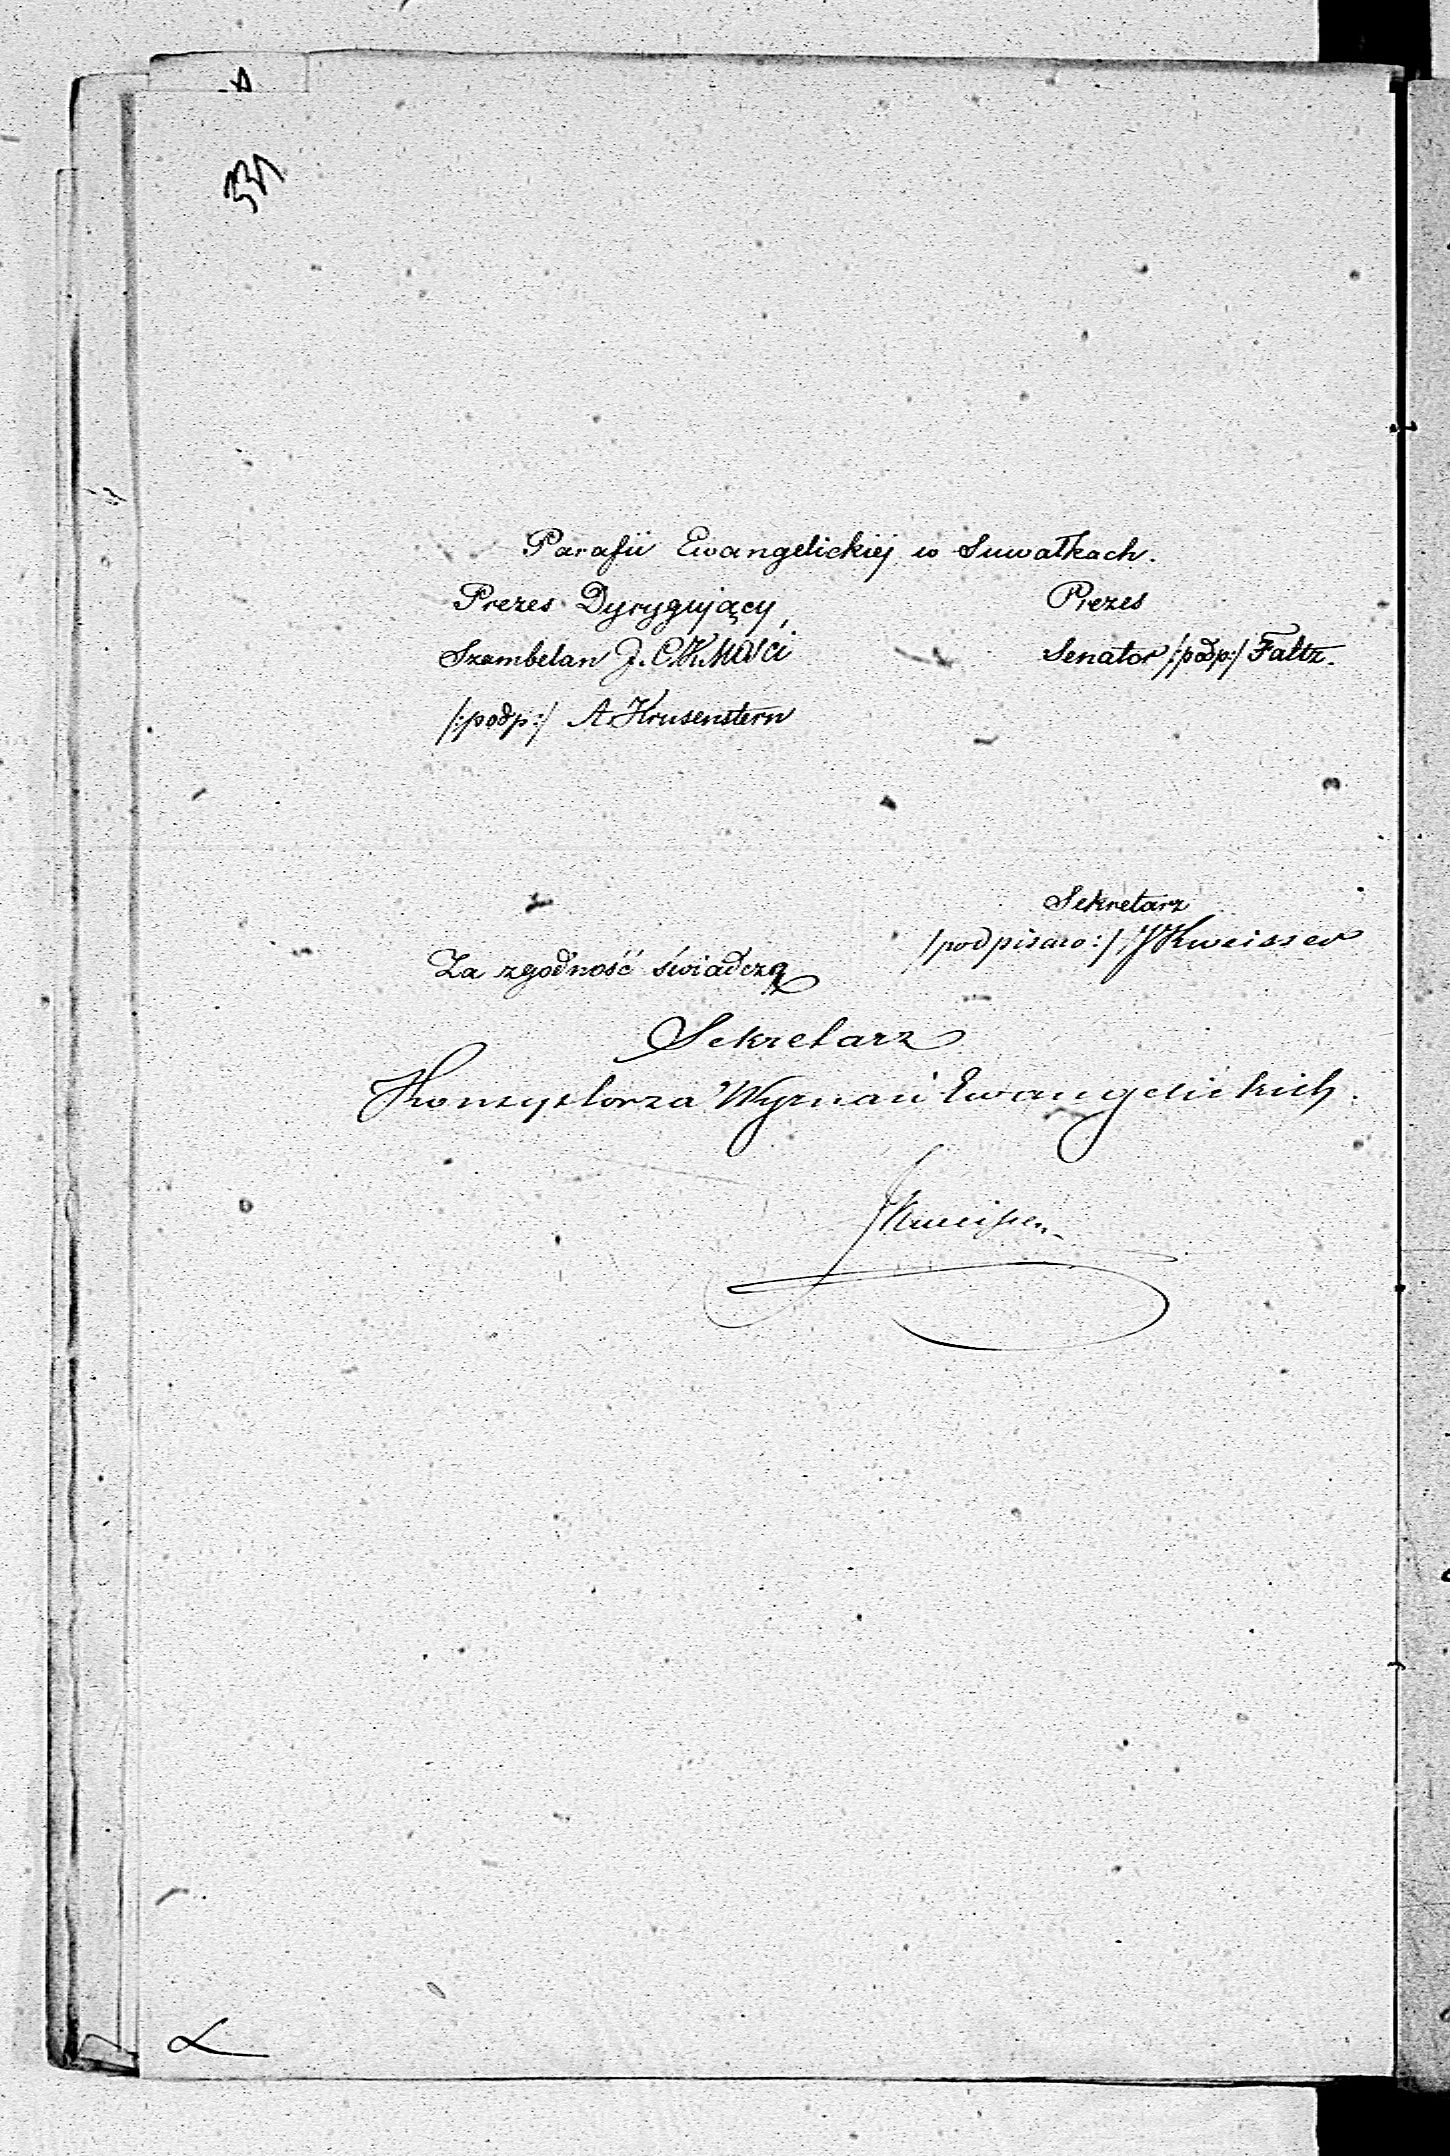 Parafii Ewangelickiéj w Suwałkach.
Prezes Dyrygujący,
Szambelan J. C. K. Mości
/:podp:/ A. Krusenstern
Prezes
Senator /:podp:/ Faltz.
Sekretarz
/podpisano:/ J Kweisser
Za zgodność świadczą
Sekretarz
Konsystorza Wyznań Ewangelickich.
JKweisser